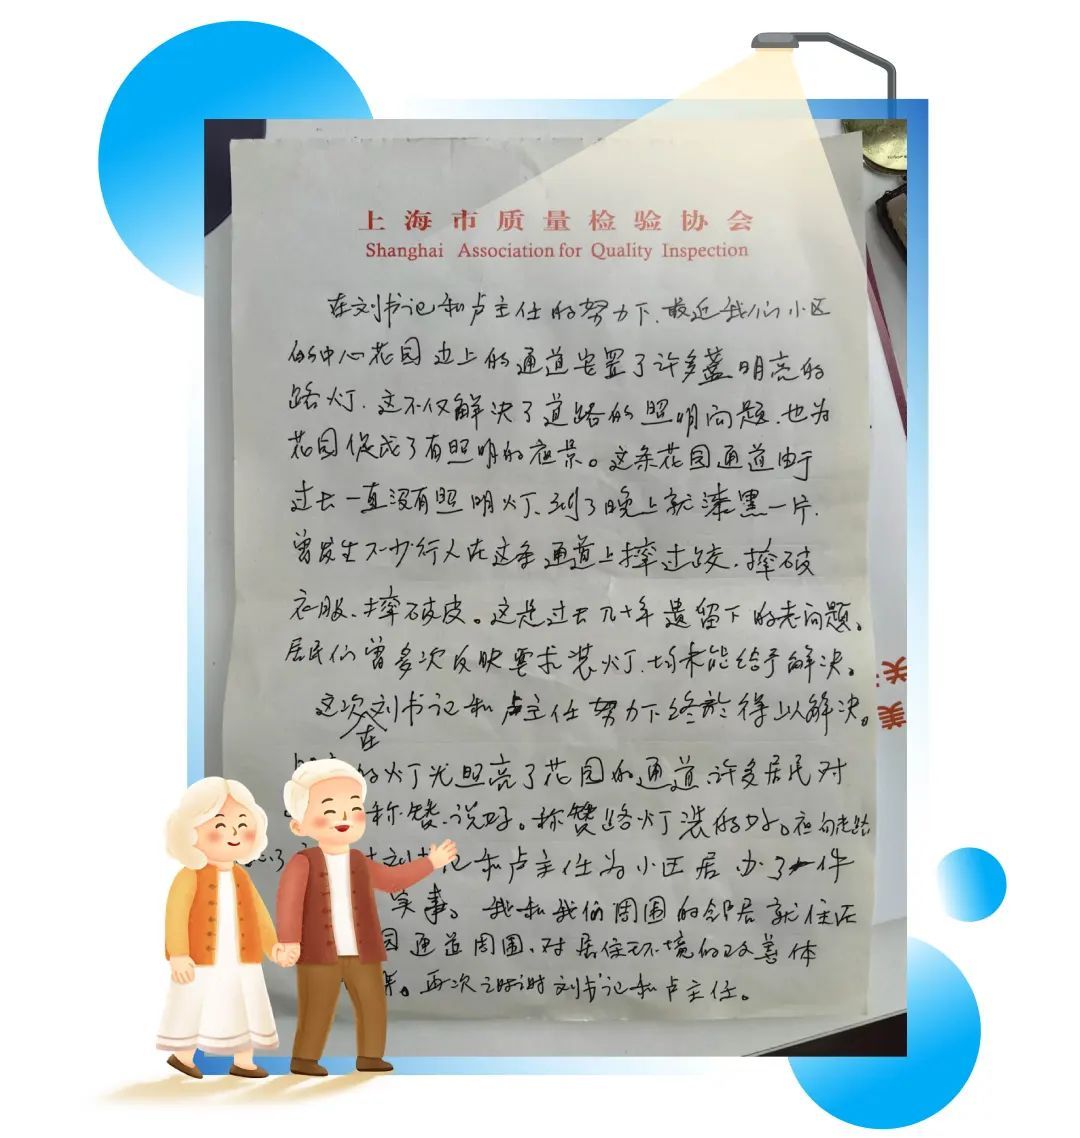 上海市质量检验协会
Shanghai Association for Quality Inspection
在刘书记和卢主任的努力下、最近我们小区
的中心花园边上的通道安置了许多盏明亮的
路灯、这不仅解决了道路的照明问题、也为
花园促成了有照明的夜景。这条花园通道由于
过去一直没有照明灯、到了晚上就漆黑一片、
曾发生不少行人在这条通道上摔过跤、摔破
衣服、摔破皮。这是过去几十年遗留下的老问题。
居民们曾多次反映要求装灯、均未能给予解决。
这次在刘书记和卢主任努力下终於得以解决。
的灯光照亮了花园的通道、许多居民对
称赞、说好。称赞路灯装的好。夜间走路
刘书记和卢主任为小区居办了一件
实事。我和我们周围的邻居就住在
园通道周围、对居住环境的改善体
再次谢谢刘书记和卢主任。
关
美